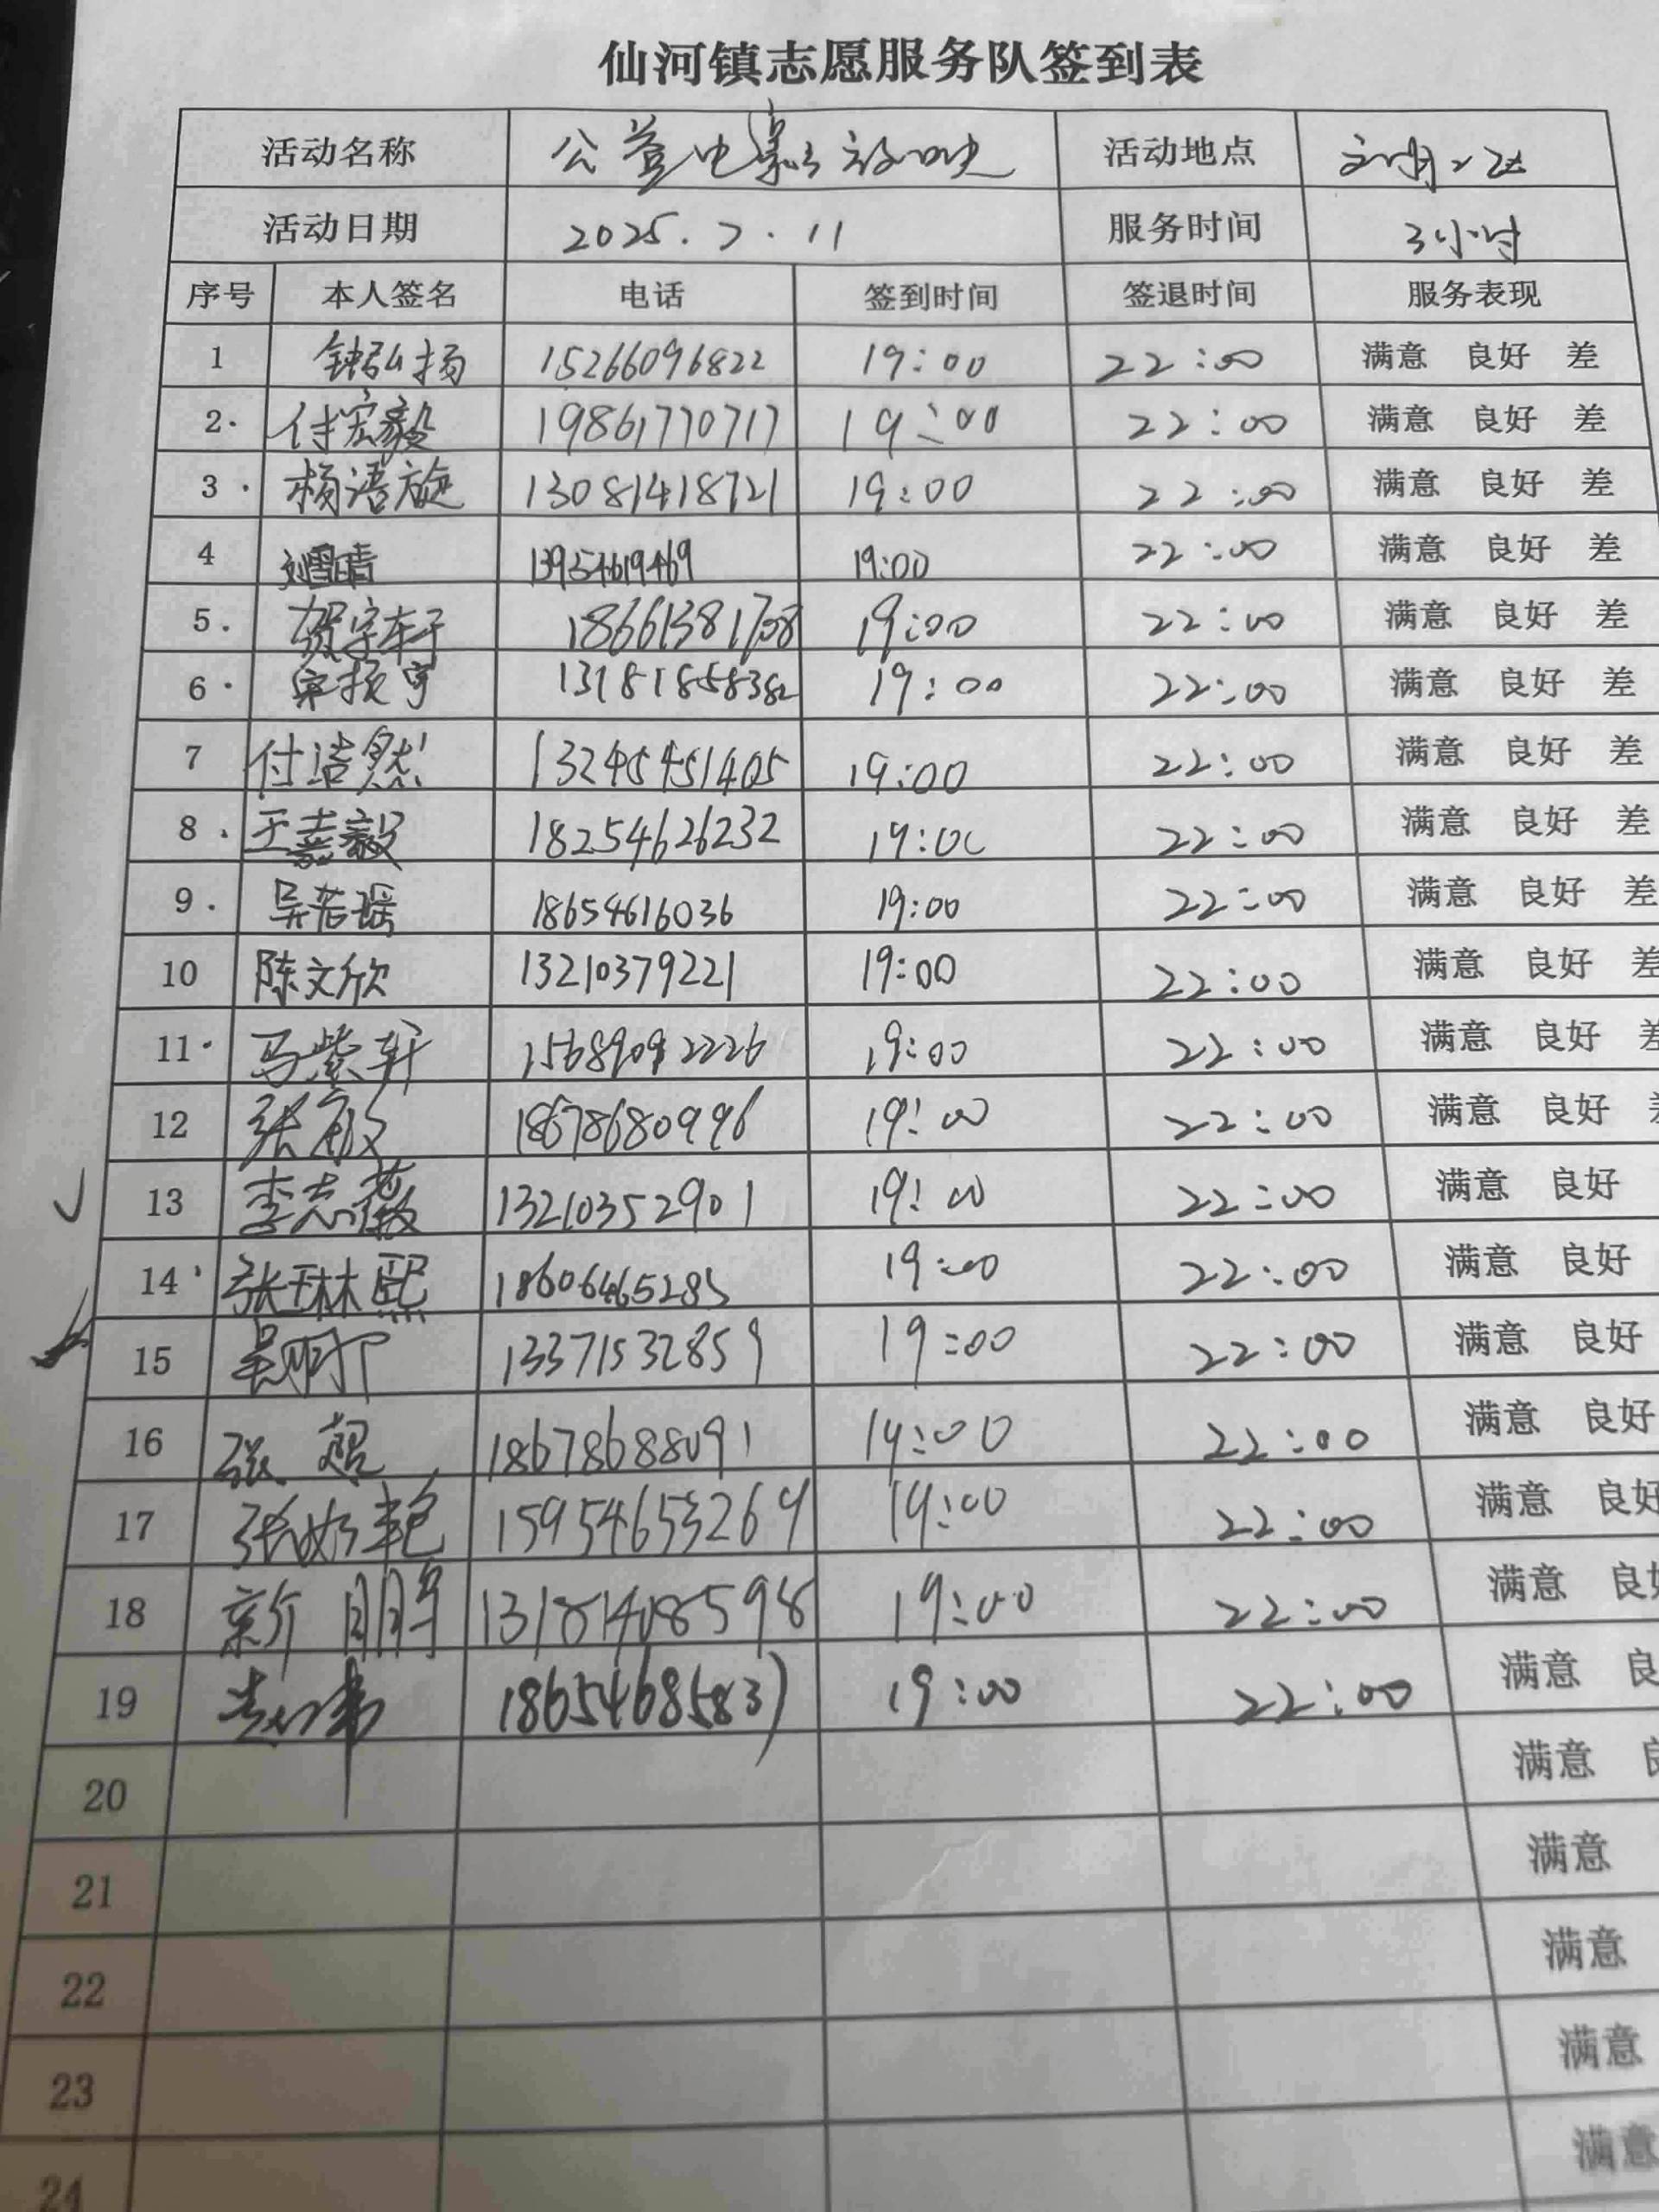 仙河镇志愿服务队签到表
活动名称 公益电影放映 活动地点
活动日期 2025.7.11 服务时间 3小时
序号 本人签名 电话 签到时间 签退时间 服务表现
1 钟弘扬 15266096822 19:00 22:00 满意 良好 差
2. 付宏毅 19861770717 19:00 22:00 满意 良好 差
3. 杨语旋 13081418721 19:00 22:00 满意 良好 差
4 刘雪晴 13954619469 19:00 22:00 满意 良好 差
5. 贺宇轩 19:00 22:00 满意 良好 差
6. 19:00 22:00 满意 良好 差
7 付浩然 13245451405 19:00 22:00 满意 良好 差
8. 王嘉毅 18254626232 19:00 22:00 满意 良好 差
9. 吴若瑶 18654616036 19:00 22:00 满意 良好 差
10 陈文欣 13210379221 19:00 22:00 满意 良好 差
11. 马紫轩 15689092226 19:00 22:00 满意 良好 差
12 张敏 18678680996 19:00 22:00 满意 良好
13 李志薇 13210352901 19:00 22:00 满意 良好
14 张琳熙 18606465285 19:00 22:00 满意 良好
15 13371532859 19:00 22:00 满意 良好
16 张超 18678688091 19:00 22:00 满意 良好
17 15954653269 19:00 22:00 满意 良好
18 13181408598 19:00 22:00 满意 良好
19 赵伟 18654685837 19:00 22:00 满意 良
20 满意
21 满意
22 满意
23 满意
24 满意